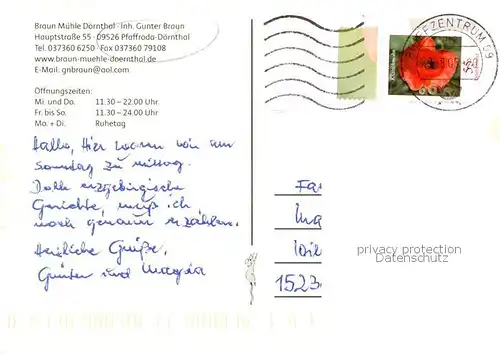 Braun Mühle Dörnthal · Inh. Gunter Braun
Hauptstraße 55 · 09526 Pfaffroda-Dörnthal
Tel. 037360 6250 · Fax 037360 79108
www.braun-muehle-doernthal.de
E-Mail: gnbraun@aol.com
Öffnungszeiten:
Mi. und Do. 11.30 – 22.00 Uhr
Fr. bis So. 11.30 – 24.00 Uhr
Mo. + Di. Ruhetag
Hallo, Hier waren wir am
Sonntag zu mittag.
Dolle erzgebirgische
Gerichte, muß ich
noch genauer erzählen.
Herzliche Grüße,
Günter und Magda
FZENTRUM 09
55
Fa
1523
privacy protection
Datenschutz